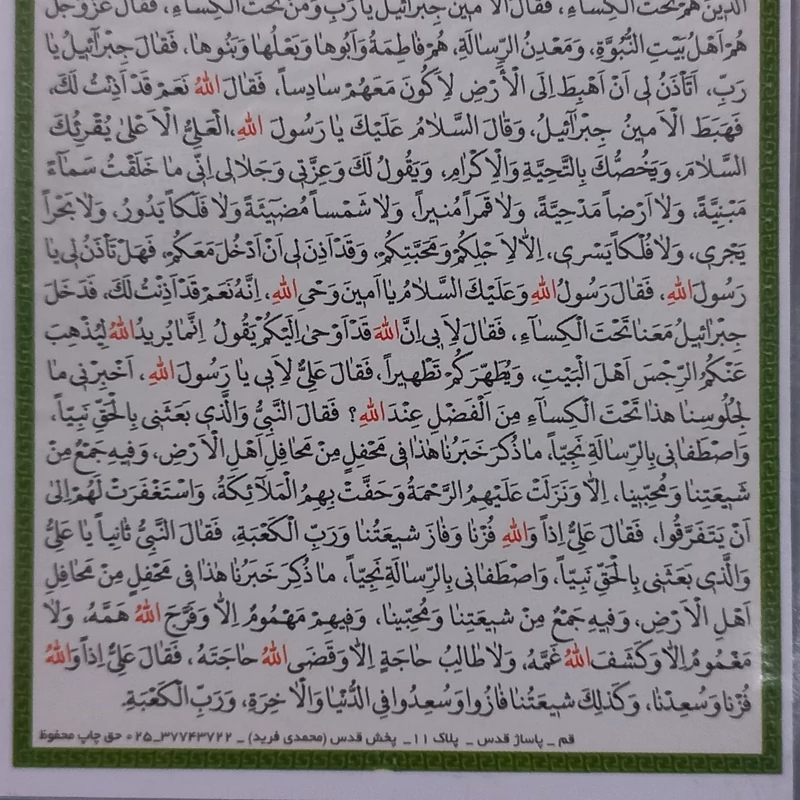 الَّذِينَ هُمْ تَحْتَ الْكِسَاءِ، فَقَالَ الْاَمِينُ جِبْرَائِيلُ يَا رَبِّ وَمَنْ تَحْتَ الْكِسَاءِ، فَقَالَ عَزَّوَجَلَّ
هُمْ اَهْلُ بَيْتِ النُّبُوَّةِ، وَمَعْدِنُ الرِّسَالَةِ، هُمْ فَاطِمَةُ وَاَبُوهَا وَبَعْلُهَا وَبَنُوهَا، فَقَالَ جِبْرَآئِيلُ يَا
رَبِّ، اَتَأْذَنُ لِى اَنْ اَهْبِطَ اِلَى الْأَرْضِ لِاَكُونَ مَعَهُمْ سَادِساً، فَقَالَ اللهُ نَعَمْ قَدْ اَذِنْتُ لَكَ،
فَهَبَطَ الْاَمينُ جِبْرَآئِيلُ، وَقَالَ السَّلَامُ عَلَيْكَ يَا رَسُولَ اللهِ، الْعَلِىُّ الْاَعْلىٰ يُقْرِئُكَ
السَّلَامَ، وَيَخُصُّكَ بِالتَّحِيَّةِ وَالْاِكْرامِ، وَيَقُولُ لَكَ وَعِزَّتِى وَجَلَالِى اِنِّى مَا خَلَقْتُ سَمَآءً
مَبْنِيَّةً، وَلَا اَرْضاً مَدْحِيَّةً، وَلَا قَمَراً مُنيراً، وَلَا شَمْساً مُضيٓئَةً وَلَا فَلَكاً يَدُورُ، وَلَا بَحْراً
يَجْرى، وَلَا فُلْكاً يَسْرى، اِلَّا لِاَجْلِكُمْ وَمَحَبَّتِكُمْ، وَقَدْ اَذِنَ لى اَنْ اَدْخُلَ مَعَكُمْ، فَهَلْ تَأْذَنُ لى يَا
رَسُولَ اللهِ، فَقَالَ رَسُولُ اللهِ وَعَلَيْكَ السَّلَامُ يَا اَمينَ وَحْىِ اللهِ، اِنَّهُ نَعَمْ قَدْ اَذِنْتُ لَكَ، فَدَخَلَ
جِبْرَائيلُ مَعَنَا تَحْتَ الْكِسَآءِ، فَقَالَ لِاَبى اِنَّ اللهَ قَدْ اَوْحىٰ اِلَيْكُمْ يَقُولُ اِنَّمَا يُريدُ اللهُ لِيُذْهِبَ
عَنْكُمُ الرِّجْسَ اَهْلَ الْبَيْتِ، وَيُطَهِّرَكُمْ تَطْهيراً، فَقَالَ عَلِىٌّ لِاَبى يَا رَسُولَ اللهِ، اَخْبِرْنى مَا
لِجُلُوسِنَا هٰذَا تَحْتَ الْكِسَآءِ مِنَ الْفَضْلِ عِنْدَ اللهِ؟ فَقَالَ النَّبِىُّ وَالَّذى بَعَثَنى بِالْحَقِّ نَبِيّاً،
وَاصْطَفَانى بِالرِّسَالَةِ نَجِيّاً، مَا ذُكِرَ خَبَرُنَا هٰذَا فى مَحْفِلٍ مِنْ مَحَافِلِ اَهْلِ الْاَرْضِ، وَفيهِ جَمْعٌ مِنْ
شيعَتِنَا وَمُحِبّينَا، اِلَّا وَنَزَلَتْ عَلَيْهِمُ الرَّحْمَةُ وَحَفَّتْ بِهِمُ الْمَلَآئِكَةُ، وَاسْتَغْفَرَتْ لَهُمْ اِلىٰ
اَنْ يَتَفَرَّقُوا، فَقَالَ عَلِىٌّ اِذاً وَاللهِ فُزْنَا وَفَازَ شيعَتُنَا وَرَبِّ الْكَعْبَةِ، فَقَالَ النَّبِىُّ ثَانِياً يَا عَلِىُّ
وَالَّذى بَعَثَنى بِالْحَقِّ نَبِيّاً، وَاصْطَفَانى بِالرِّسَالَةِ نَجِيّاً، مَا ذُكِرَ خَبَرُنَا هٰذَا فى مَحْفِلٍ مِنْ مَحَافِلِ
اَهْلِ الْاَرْضِ، وَفيهِ جَمْعٌ مِنْ شيعَتِنَا وَمُحِبّينَا، وَفيهِمْ مَهْمُومٌ اِلَّا وَفَرَّجَ اللهُ هَمَّهُ، وَلَا
مَغْمُومٌ اِلَّا وَكَشَفَ اللهُ غَمَّهُ، وَلَا طَالِبُ حَاجَةٍ اِلَّا وَقَضَى اللهُ حَاجَتَهُ، فَقَالَ عَلِىٌّ اِذاً وَاللهِ
فُزْنَا وَسُعِدْنَا، وَكَذٰلِكَ شيعَتُنَا فَازُوا وَسُعِدُوا فِى الدُّنْيَا وَالْاٰخِرَةِ، وَرَبِّ الْكَعْبَةِ.
قم _ پاساژ قدس _ پلاک ۱۱ _ پخش قدس (محمدی فرید) _ ۳۷۷۴۳۷۲۲_۰۲۵ حق چاپ محفوظ